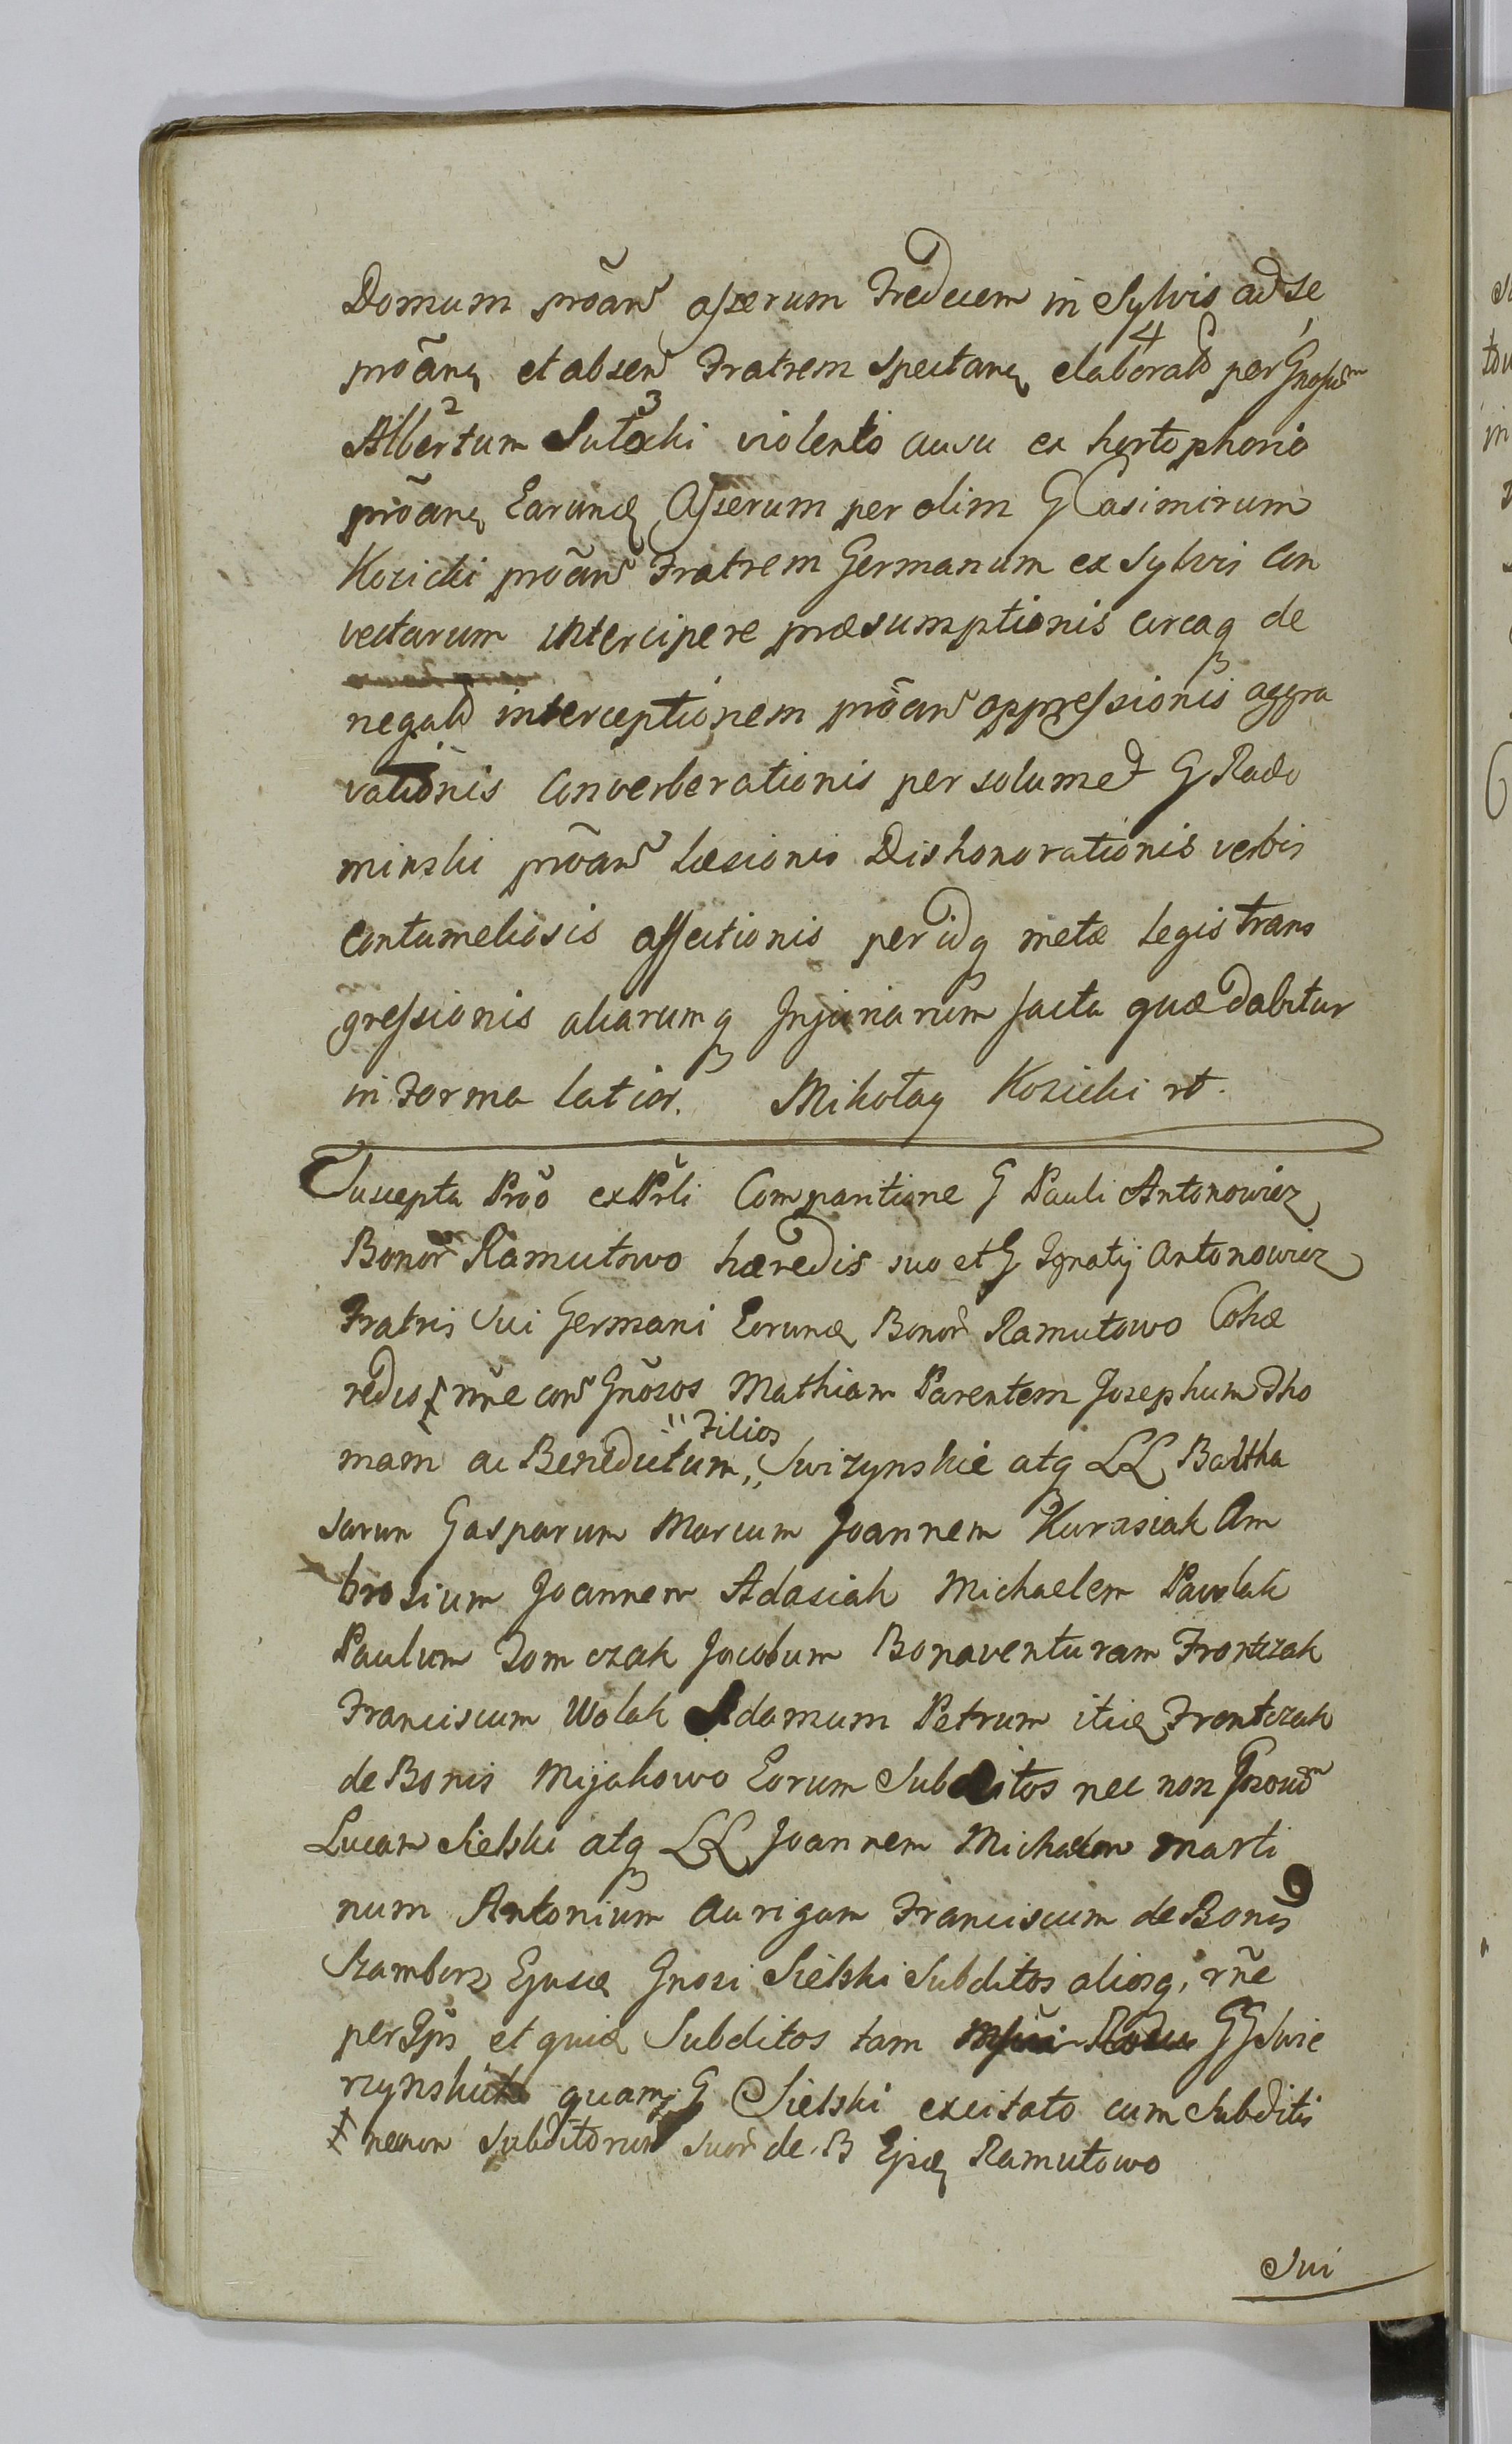 Domum prõan asserum Tredecem in Sylvis ad se
prõanꝫ et absen Fratrem spectanꝫ elaborat per Gnosum
Albertum Sutocki violento ausu ex hortophorio
prõanꝫ Earundꝫ Asserum per olim G Casimirum
Kozicki prõan Fratrem Germanum ex Sylvis Con
vectarum intercipere præsumptionis circaq de
negat interceptionem prõan oppressionis aggra
vationis Converberationis per solumet G Rado
minski prõan Læsionis Dishonorationis verbis
contumeliosis affectionis per idq metæ Legis trans
gressionis aliarumq Injuriarum facta quæ dabitur
in Forma latior. Mikołay Kozicki rt.
Suscepta Prõõ ex Prli Comparitione G Pauli Antonowicz
Bonor Ramutowo hæredis suo et G Ignatij Antonowicz
Fratris Sui Germani Eorundꝫ Bonor Ramutowo Cohæ
redis ɫ nñe con Gnõsos Mathiam Parentem Josephum Tho
mam ac Benedictum,, " Filios Swirzynskie atq LL Baltha
sarum Gasparum Marcum Joannem Kurasiak Am
brosium Joannem Adasiak Michaelem Pawlak
Paulum Tomczak Jacobum Bonaventuram Frontczak
Franciscum Wolak Adamum Petrum itidꝫ Frontczak
de Bonis Mijakowo Eorum Subditos nec non Gnosum
Lucam Sielski atq LL Joannem Michaelem Marti
num Antonium Aurigam Franciscum de Bonis
Szambors Ejusdꝫ Gnosi Sielski Subditos aliosq, rñe
per Ipõs et quidꝫ Subditos tam GG Swie
rczynskich quam G Sielski excitato cum Subditis
ɫ necnon Subditorum suor de B Ejsdꝫ Ramutowo
Sui